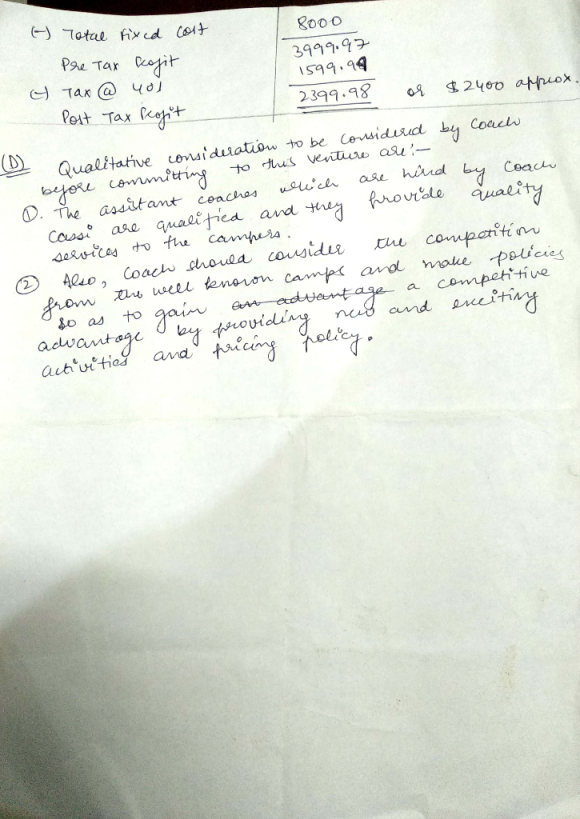 (-) Total Fixed Cost 8000
Pre Tax Profit 3999.97
(-) Tax @ 40% 1599.99
Post Tax Profit 2399.98 or $2400 approx.
(D) Qualitative consideration to be considered by Coach
before committing to this venture are:-
①. The assistant coaches which are hired by Coach
Cassi are qualified and they provide quality
services to the campers.
② Also, Coach should consider the competition
from the well known camps and make policies
so as to gain an advantage a competitive
advantage by providing new and exciting
activities and pricing policy.